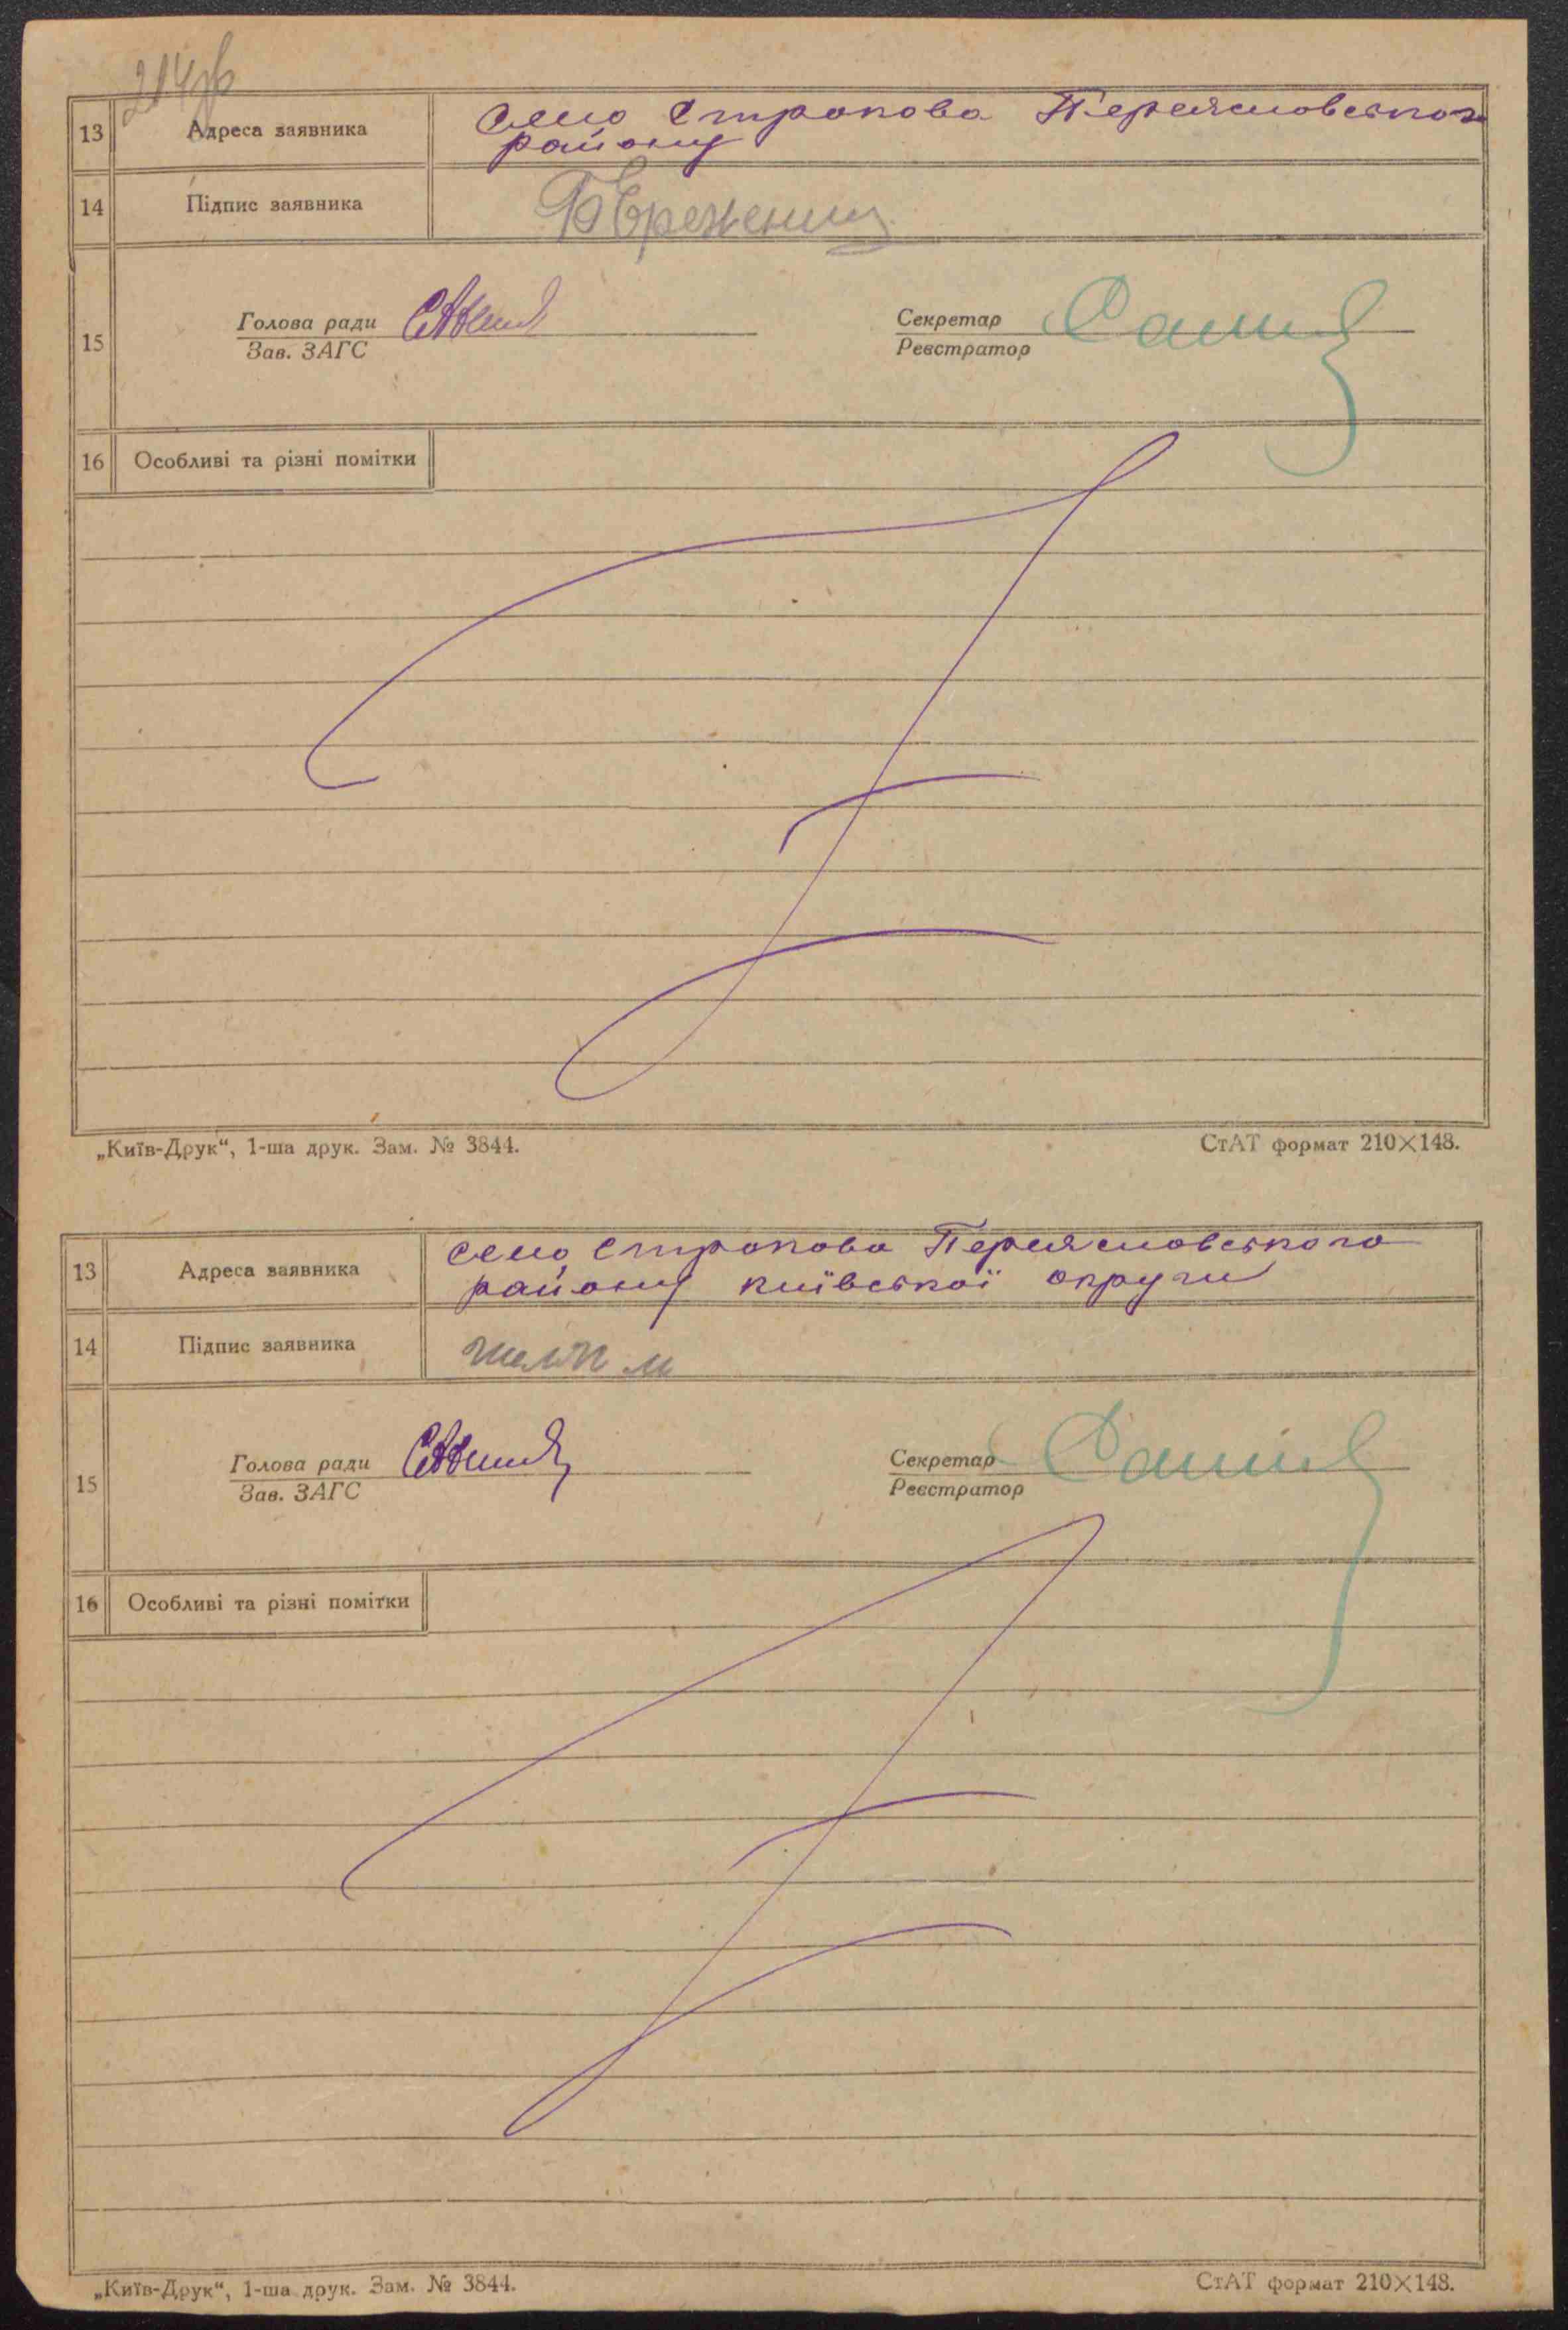 13 Адреса заявника село Строкова Переяславського
району
14 Підпис заявника
15 Голова ради Секретар
Зав. ЗАГС Реєстратор
16 Особливі та різні помітки
„Київ-Друк“, 1-ша друк. Зам. № 3844. СтАТ формат 210×148.
13 Адреса заявника село Строкова Переясловського
району київської округи
14 Підпис заявника
15 Голова ради Секретар
Зав. ЗАГС Реєстратор
16 Особливі та різні помітки
„Київ-Друк“, 1-ша друк. Зам. № 3844. СтАТ формат 210×148.